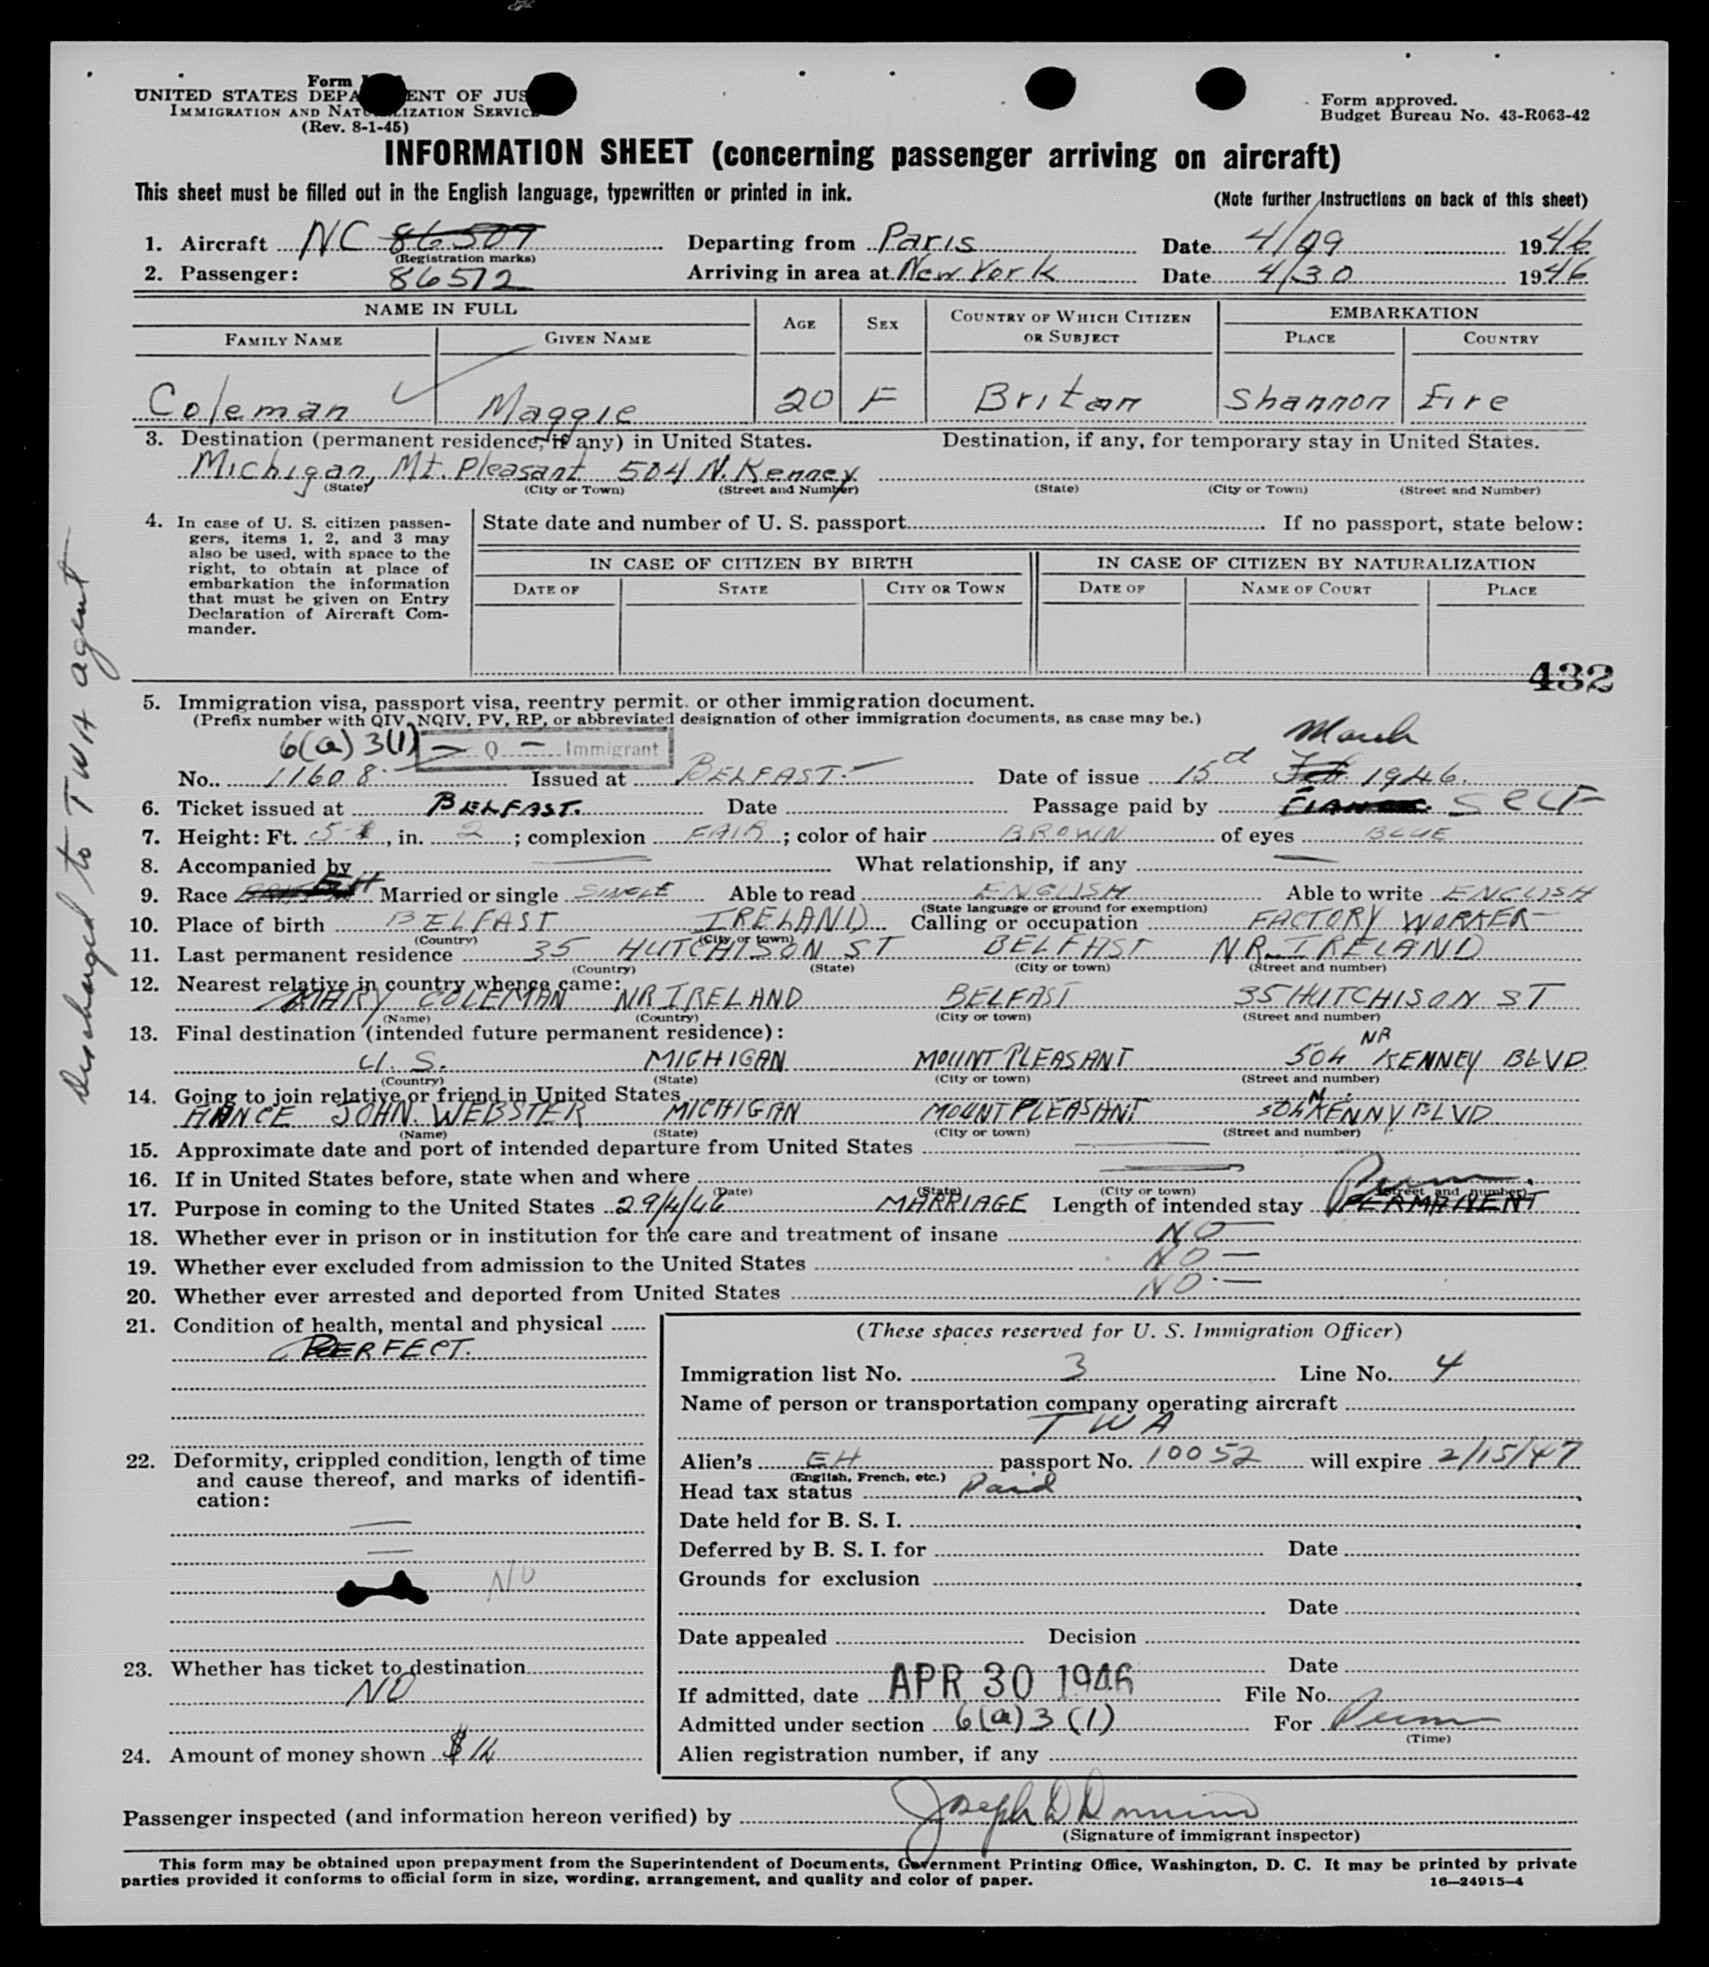 Form
UNITED STATES DEPA ENT OF JUS
IMMIGRATION AND NATURALIZATION SERVICE
(Rev. 8-1-45)
Form approved.
Budget Bureau No. 43-R063-42
INFORMATION SHEET (concerning passenger arriving on aircraft)
This sheet must be filled out in the English language, typewritten or printed in ink.
(Note further instructions on back of this sheet)
1. Aircraft NC 86507 Departing from Paris Date 4/29 1946
(Registration marks)
2. Passenger: 86512 Arriving in area at New York Date 4/30 1946
NAME IN FULL AGE SEX COUNTRY OF WHICH CITIZEN OR SUBJECT EMBARKATION
FAMILY NAME GIVEN NAME PLACE COUNTRY
Coleman Maggie 20 F Britan Shannon Eire
3. Destination (permanent residence, if any) in United States. Destination, if any, for temporary stay in United States.
Michigan, Mt. Pleasant 504 N. Kenney
(State) (City or Town) (Street and Number) (State) (City or Town) (Street and Number)
4. In case of U. S. citizen passen-
gers, items 1, 2, and 3 may
also be used, with space to the
right, to obtain at place of
embarkation the information
that must be given on Entry
Declaration of Aircraft Com-
mander.
State date and number of U. S. passport If no passport, state below:
IN CASE OF CITIZEN BY BIRTH IN CASE OF CITIZEN BY NATURALIZATION
DATE OF STATE CITY OR TOWN DATE OF NAME OF COURT PLACE
432
Discharged to TWA agent
5. Immigration visa, passport visa, reentry permit, or other immigration document.
(Prefix number with QIV, NQIV, PV, RP, or abbreviated designation of other immigration documents, as case may be.)
6(a)3(1) Q Immigrant March
No. 11608 Issued at BELFAST. Date of issue 15d Feb 1946.
6. Ticket issued at BELFAST. Date Passage paid by FIANCE SELF
7. Height: Ft. 5, in. 2; complexion FAIR; color of hair BROWN of eyes BLUE
8. Accompanied by What relationship, if any
9. Race Married or single SINGLE Able to read ENGLISH Able to write ENGLISH
(State language or ground for exemption)
10. Place of birth BELFAST IRELAND Calling or occupation FACTORY WORKER
(Country) (City or town)
11. Last permanent residence 35 HUTCHISON ST BELFAST NR. IRELAND
(Country) (State) (City or town) (Street and number)
12. Nearest relative in country whence came:
MARY COLEMAN NR IRELAND BELFAST 35 HUTCHISON ST
(Name) (Country) (City or town) (Street and number)
13. Final destination (intended future permanent residence):
U.S. MICHIGAN MOUNT PLEASANT 504 NR KENNEY BLVD
(Country) (State) (City or town) (Street and number)
14. Going to join relative or friend in United States
FIANCE JOHN. WEBSTER MICHIGAN MOUNT PLEASANT 504 N. KENNY BLVD
(Name) (State) (City or town) (Street and number)
15. Approximate date and port of intended departure from United States
16. If in United States before, state when and where
(Date) (State) (City or town) (Street and number)
17. Purpose in coming to the United States 29/4/46 MARRIAGE Length of intended stay PERMANENT Perm.
18. Whether ever in prison or in institution for the care and treatment of insane NO
19. Whether ever excluded from admission to the United States NO
20. Whether ever arrested and deported from United States NO
21. Condition of health, mental and physical
PERFECT.
22. Deformity, crippled condition, length of time
and cause thereof, and marks of identifi-
cation:
NO
23. Whether has ticket to destination
NO
24. Amount of money shown $16
(These spaces reserved for U. S. Immigration Officer)
Immigration list No. 3 Line No. 4
Name of person or transportation company operating aircraft
TWA
Alien's EH passport No. 10052 will expire 2/15/47
(English, French, etc.)
Head tax status Paid
Date held for B. S. I.
Deferred by B. S. I. for Date
Grounds for exclusion
Date
Date appealed Decision
Date
If admitted, date APR 30 1946 File No.
Admitted under section 6(a)3(1) For Perm
(Time)
Alien registration number, if any
Passenger inspected (and information hereon verified) by Joseph D
(Signature of immigrant inspector)
This form may be obtained upon prepayment from the Superintendent of Documents, Government Printing Office, Washington, D. C. It may be printed by private
parties provided it conforms to official form in size, wording, arrangement, and quality and color of paper.
16—24915-4